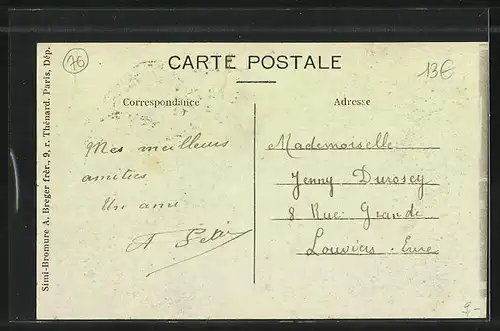 76
CARTE POSTALE
13€
Correspondance
Adresse
Mes meilleurs
amitiés
Un ami
Mademoiselle
Jenny Durosey
8 Rue Grande
Louviers. Eure
Simi-Bromure A. Breger frèr., 9, r. Thénard. Paris, Dép.
9.-